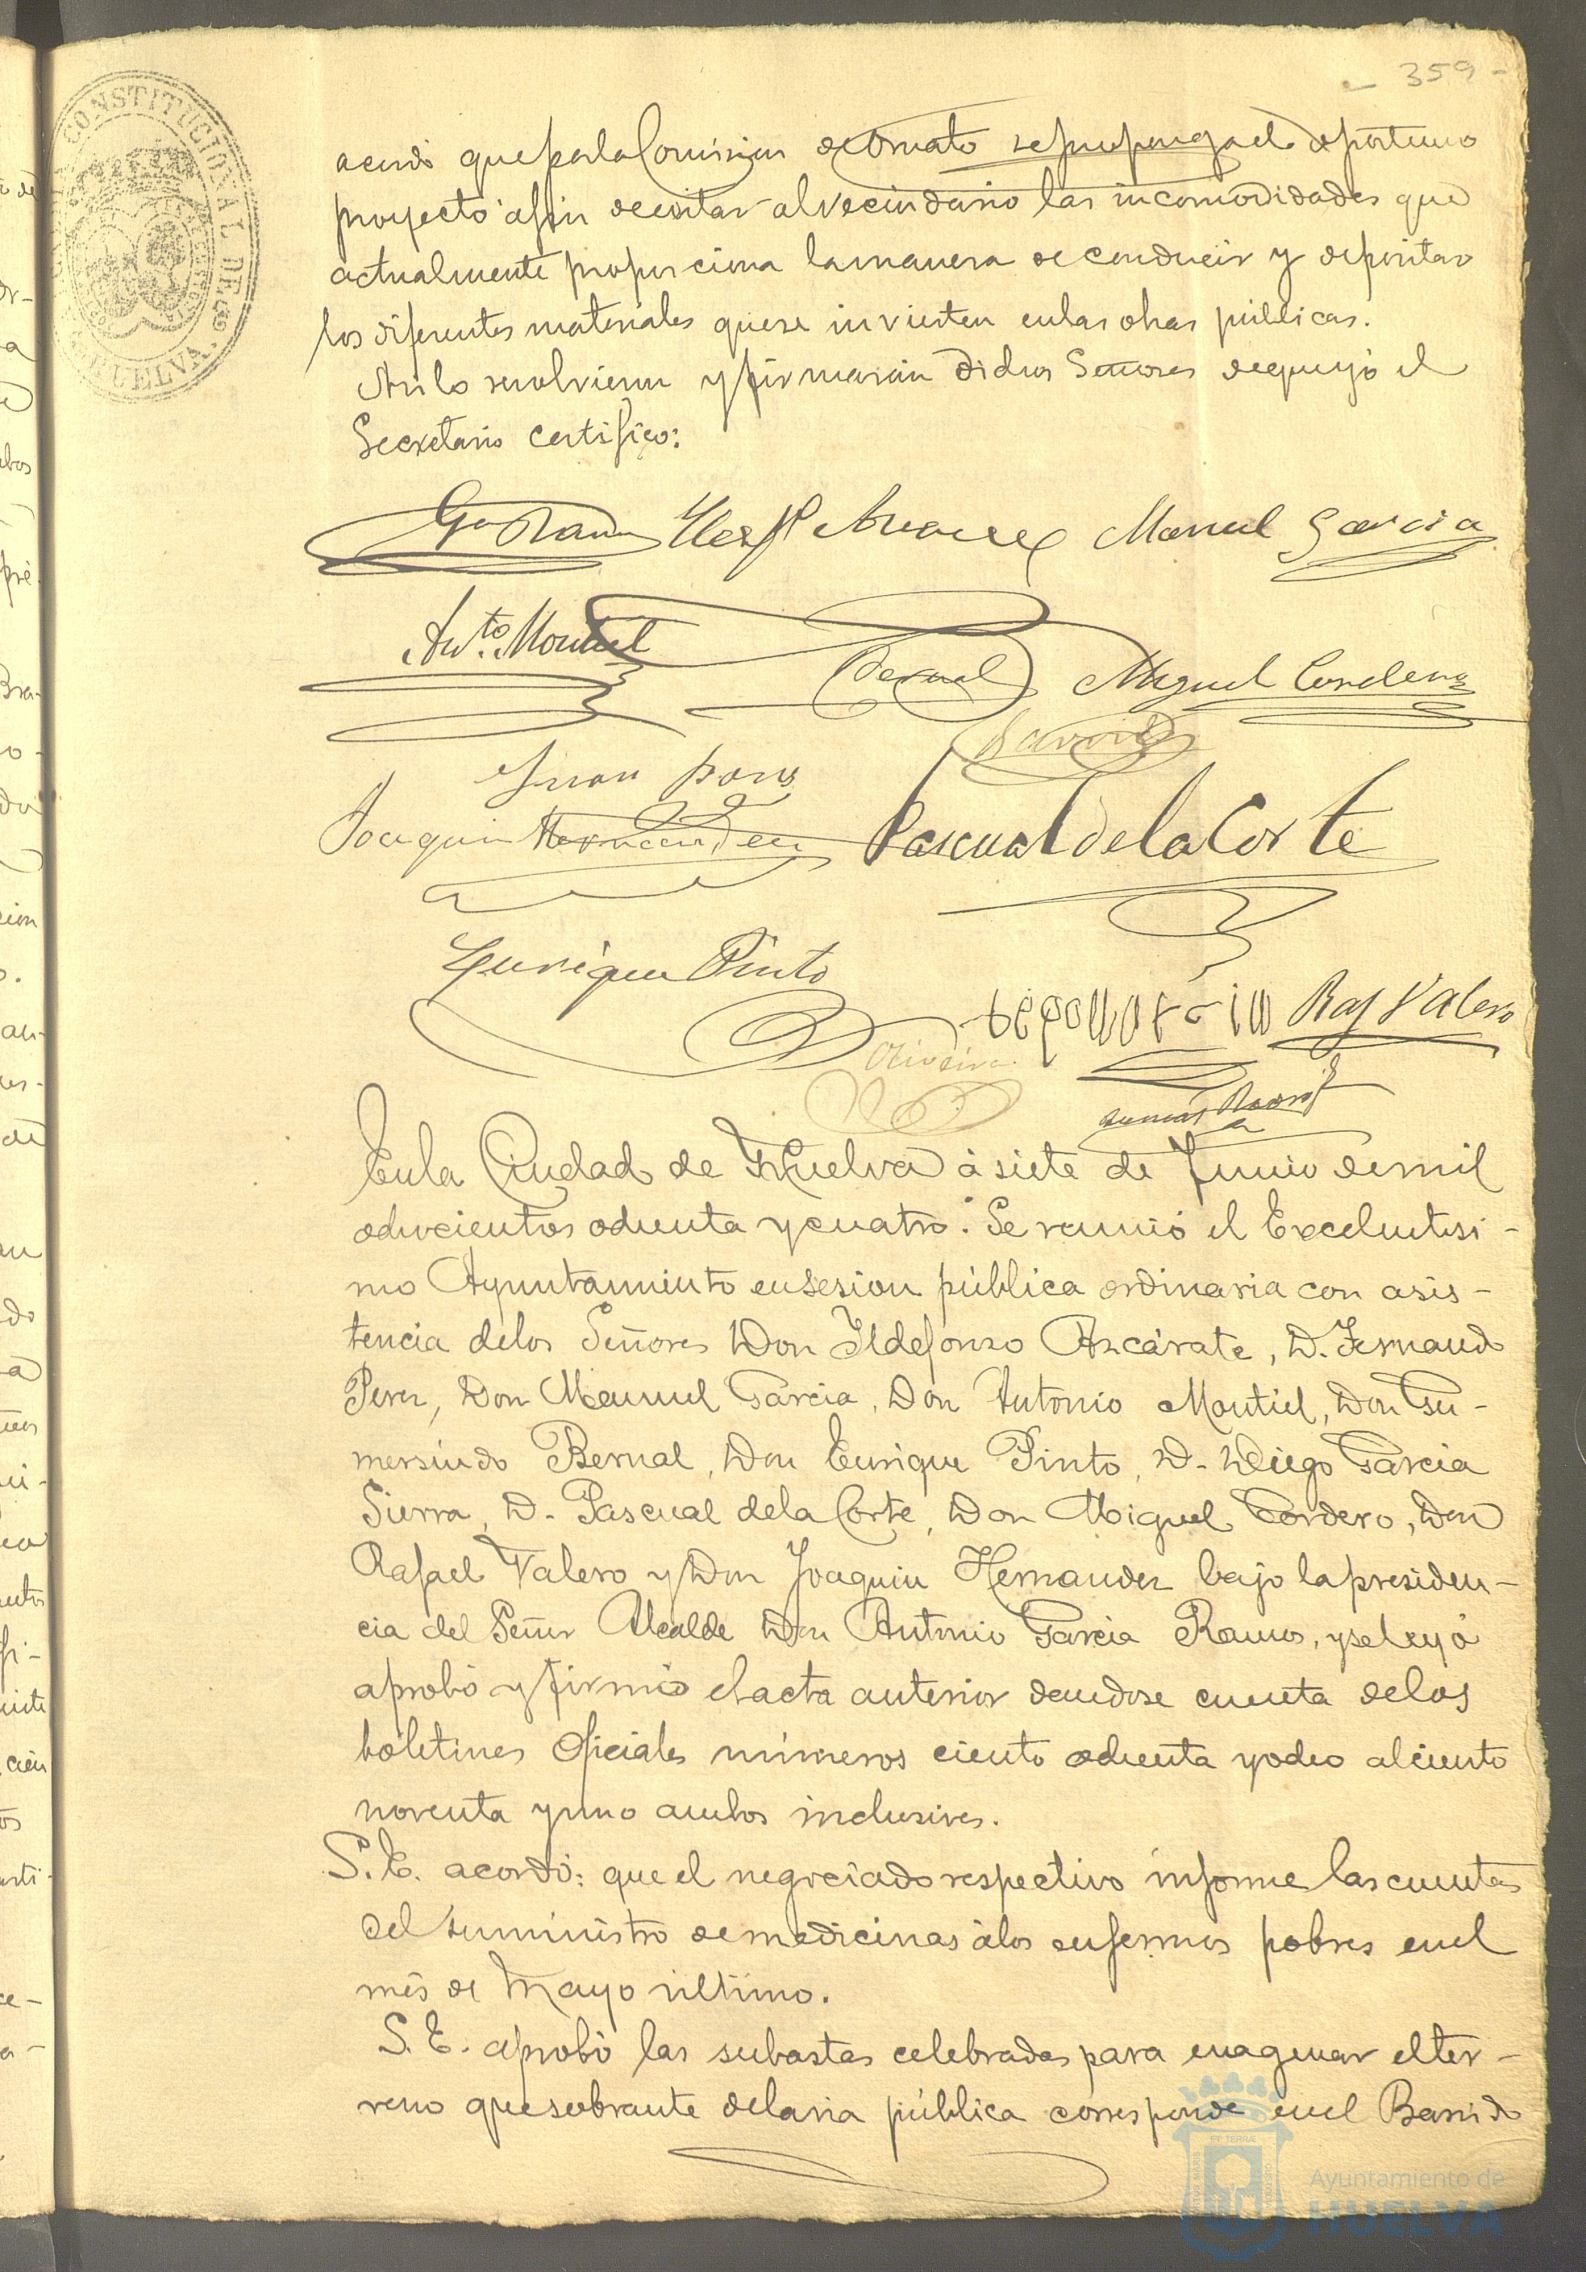 - 359 -
CONSTITUCIONAL DE
HUELVA.
acordó que por la Comision de Ornato se proponga el oportuno
proyecto á fin de evitar al vecindario las incomodidades que
actualmente proporciona la manera de conducir y depositar
los diferentes materiales que se invierten en las obras públicas.
Asi lo resolvieron y firmarán dichos Señores de que yó el
Secretario certifico:
Manuel Garcia
Ant.to Montiel
Bernal Miguel Cordero
Juan
Joaquin Hernandez Pascual de la Corte
Enrique Pinto
Raf Valero
Oliveira
En la Ciudad de Huelva á siete de Junio de mil
ochocientos ochenta y cuatro: Se reunió el Excelentisi-
mo Ayuntamiento en sesion pública ordinaria con asis-
tencia de los Señores Don Ildefonso Azcárate, D. Fernando
Perez, Don Manuel Garcia, Don Antonio Montiel, Don Gu-
mersindo Bernal, Don Enrique Pinto, D. Diego Garcia
Sierra, D. Pascual de la Corte, Don Miguel Cordero, Don
Rafael Valero y Don Joaquin Hernandez bajo la presiden-
cia del Señor Alcalde Don Antonio Garcia Ramos, y se leyó
aprobó y firmó el acta anterior dandose cuenta de los
boletines oficiales números ciento ochenta y ocho al ciento
noventa y uno ambos inclusives.
S.E. acordó: que el negociado respectivo informe las cuentas
del suministro de medicinas á los enfermos pobres en el
més de Mayo último.
S.E. aprobó las subastas celebradas para enagenar el ter-
reno que sobrante de la via pública corresponde en el Barrio de
Ayuntamiento de
HUELVA